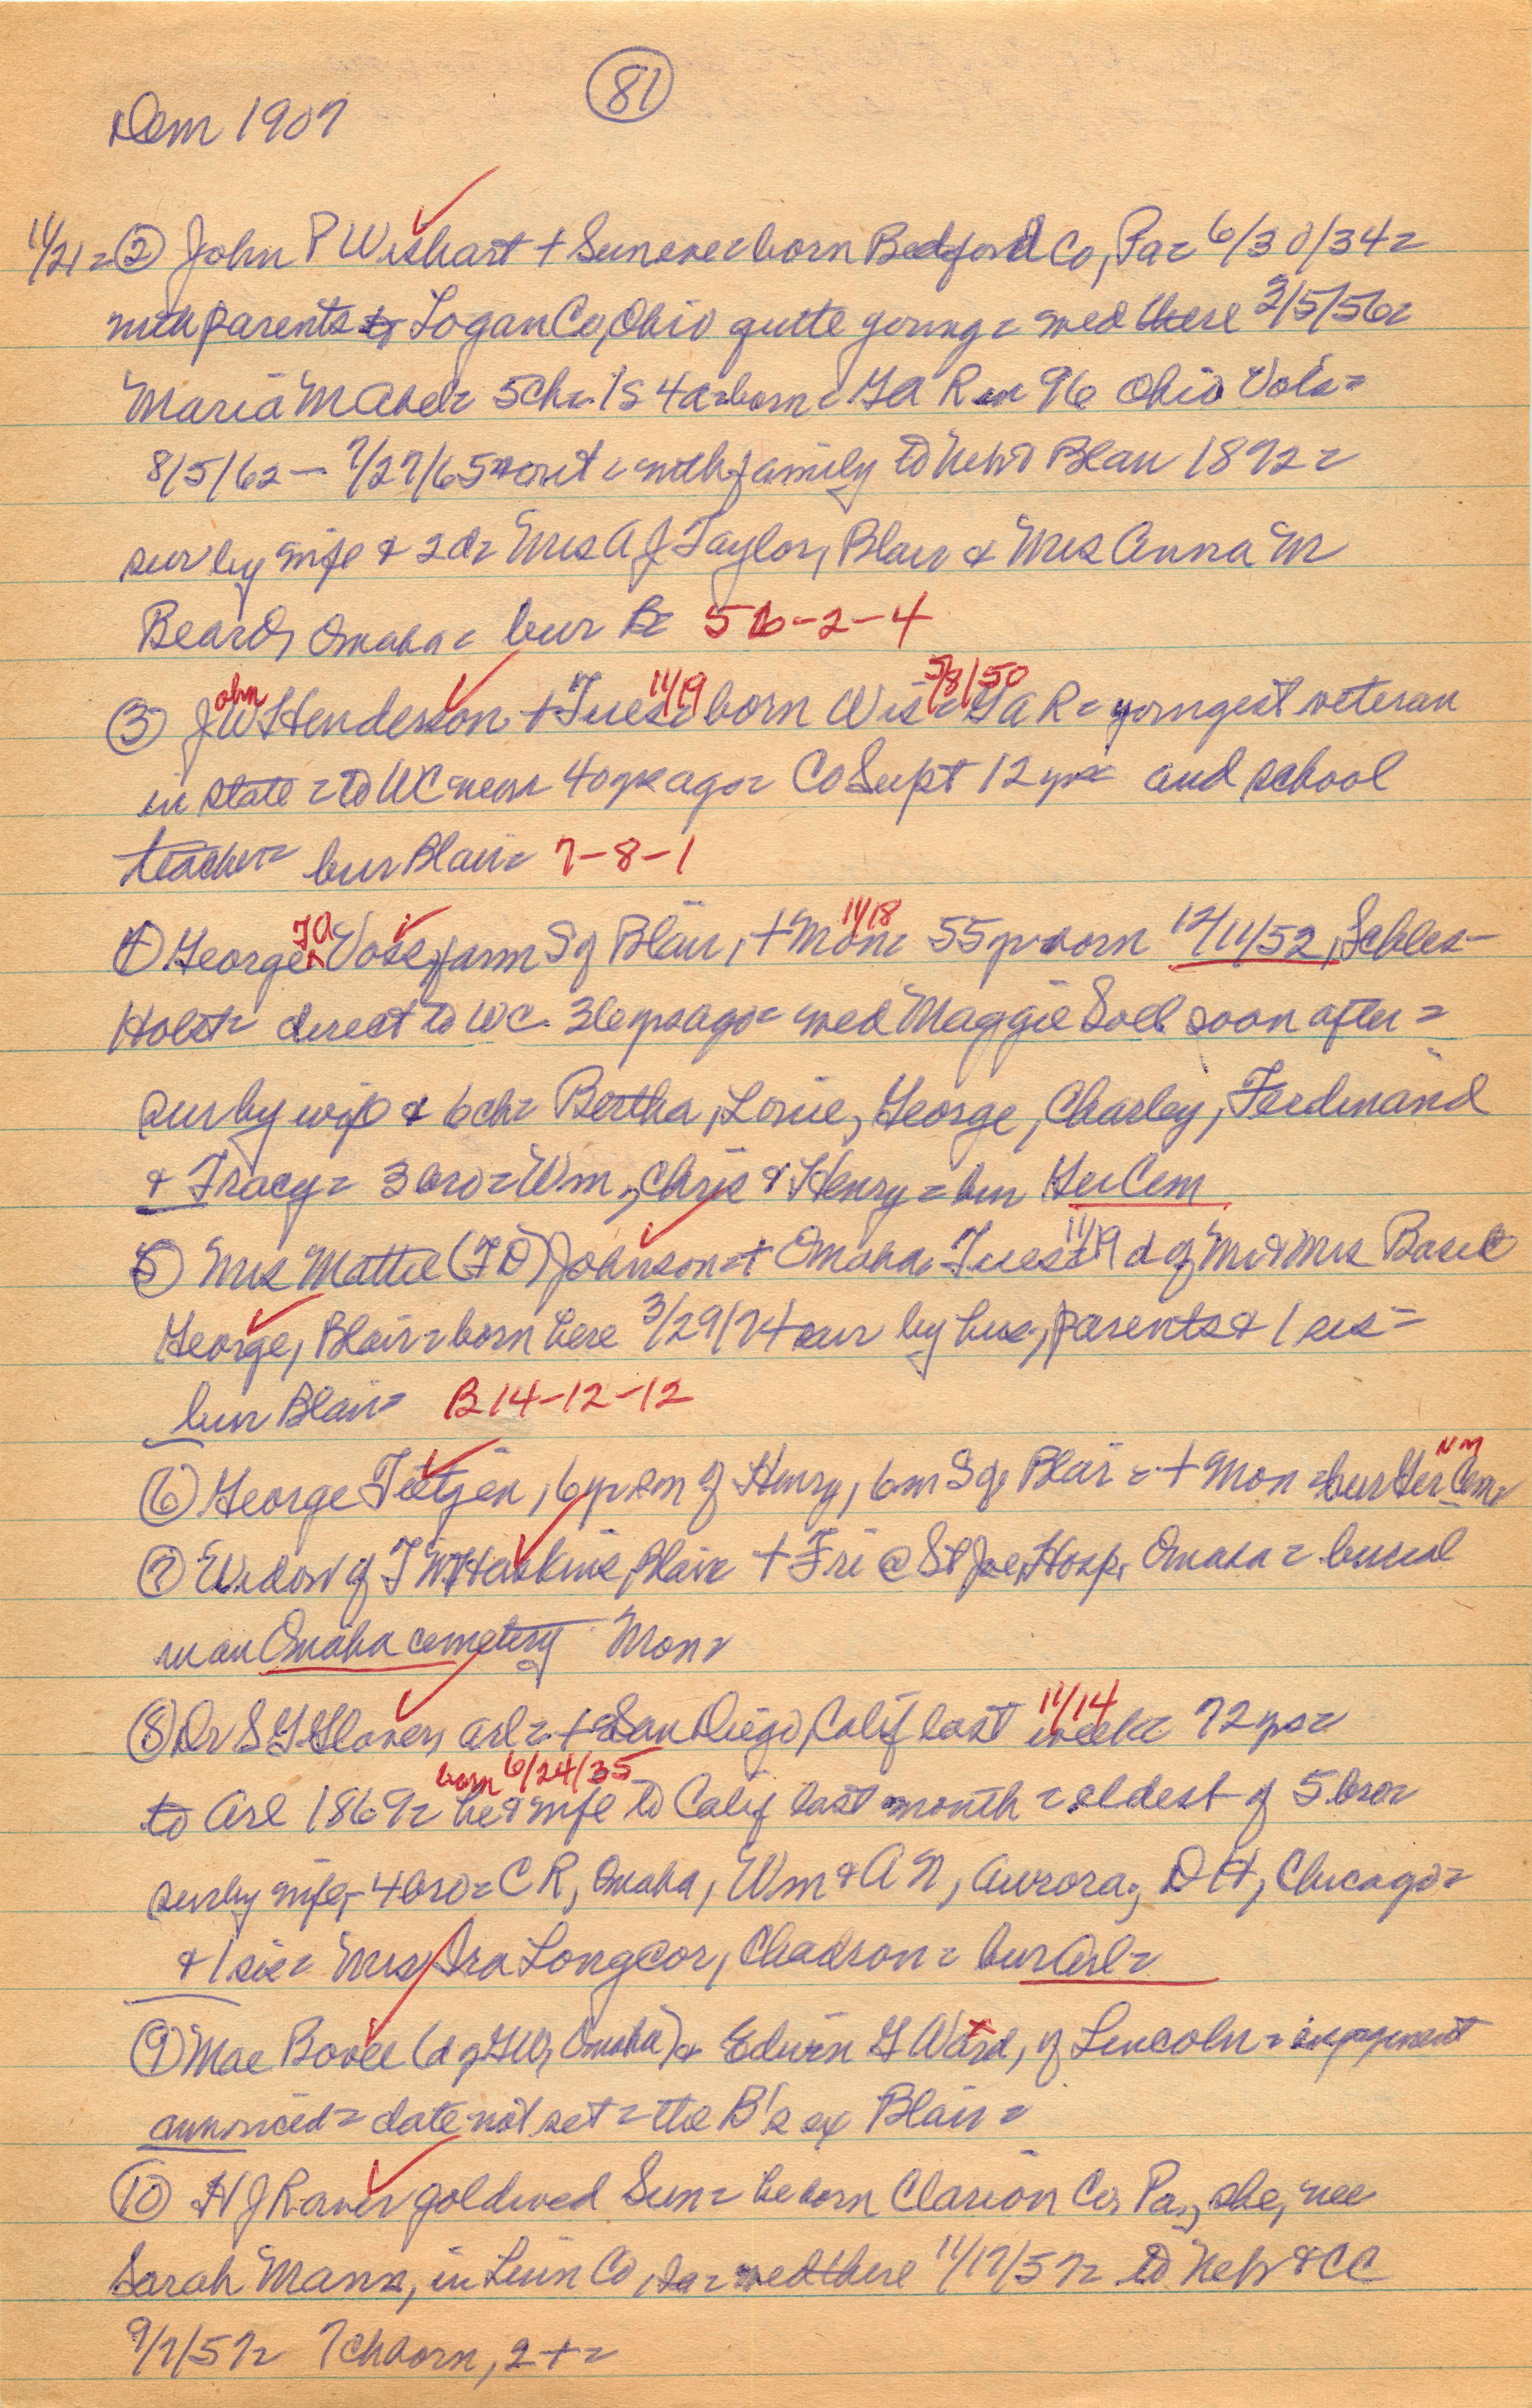 81
Dem 1907
11/21 = ② John P Wishart + Sun eve = born Bedford Co, Pa = 6/30/34 =
with parents to Logan Co, Ohio quite young = wed there 2/5/56 =
Maria M 5 ch = 1s 4d = born = GAR in 96 Ohio Vols =
8/5/62 - 7/27/65 = with family to Neb & Blair 1892 =
sur by wife & 2d = Mrs A J Taylor, Blair & Mrs Anna M
Beard, Omaha = bur B = 5 2-4
③ John W Henderson + Tues = 11/19 born Wis = 5/8/50 GAR = youngest veteran
in state = to WC near 40 yrs ago = Co Supt 12 yrs and school
teacher = bur Blair = 7-8-1
④ George Voss, farm S of Blair, + Mon = 11/18 55 yrs born 12/11/52, Schles-
Holst = direct to WC 36 yrs ago = wed Maggie Soll soon after =
sur by wife & 6 ch = Bertha, Louie, George, Charley, Ferdinand
& Tracy = 3 bro = Wm, Chris & Henry = bur Ger Cem
⑤ Mrs Mattie (F D) Johnson + Omaha Tues 11/19 d of Mr & Mrs Basil
George, Blair = born here 3/29/74 sur by hus, parents & 1 sis =
bur Blair = B 14-12-12
⑥ George Tietgen, 6 yr son of Henry, 6 m S of Blair = + Mon = bur Ger Cem
⑦ Widow of T W Haskins, Blair + Fri @ St Joe Hosp, Omaha = burial
in an Omaha cemetery Mon =
⑧ Dr S G Glover, Arl = + San Diego, Calif last week = 11/14 72 yrs =
born 6/24/35
to Arl 1869 = he & wife to Calif last month = oldest of 5 bro =
sur by wife, 4 bro = C R, Omaha, Wm & A N, Aurora, D H, Chicago =
& 1 sis = Mrs Ira Longcor, Chadron = bur Arl =
⑨ Mae Bovee (d of G W, Omaha) & Edwin G Ward, of Lincoln = engagement
announced = date not set = the B's ex Blair =
⑩ H J Raver gold wed Sun = he born Clarion Co, Pa, she, nee
Sarah Mann, in Linn Co, Ia = wed there 11/17/57 = to Neb & CC
9/7/57 = 7 ch born, 2 + =